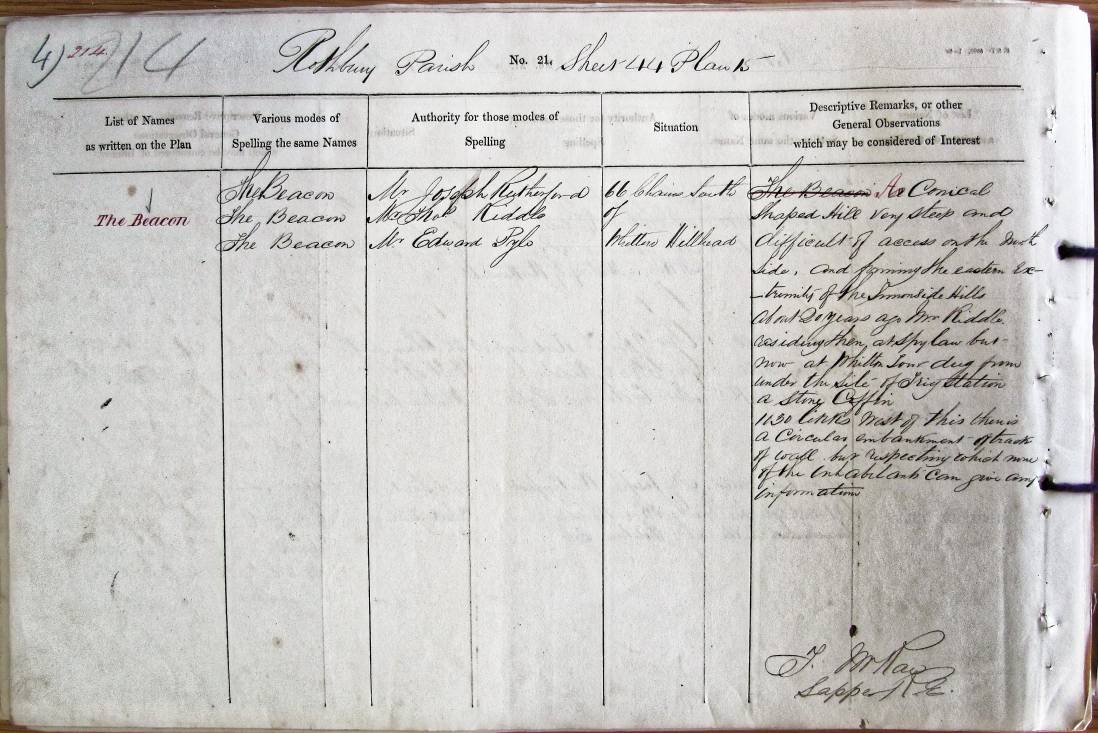 4) 214 214
Rothbury Parish No. 21. Sheet 44 Plan 15
List of Names
as written on the Plan
Various modes of
Spelling the same Names
Authority for those modes of
Spelling
Situation
Descriptive Remarks, or other
General Observations
which may be considered of Interest
The Beacon
The Beacon
The Beacon
The Beacon
Mr Joseph Rutherford
Mr Thos Riddle
Mr Edward Pyle
66 Chains South
of
Whitton Hillhead
The Beacon A Conical
Shaped Hill very steep and
difficult of access on the North
Side, and forming the eastern Ex-
-tremity of the Simonside Hills
About 20 years ago Mr Riddle
residing then at Spylaw but
now at Whitton Tower dug from
under the site of Trig Station
a Stone Coffin
1130 links West of this there is
a Circular embankment of
of wall but respecting which none
of the Inhabitants can give any
information
T. McKay
Sapper R.E.